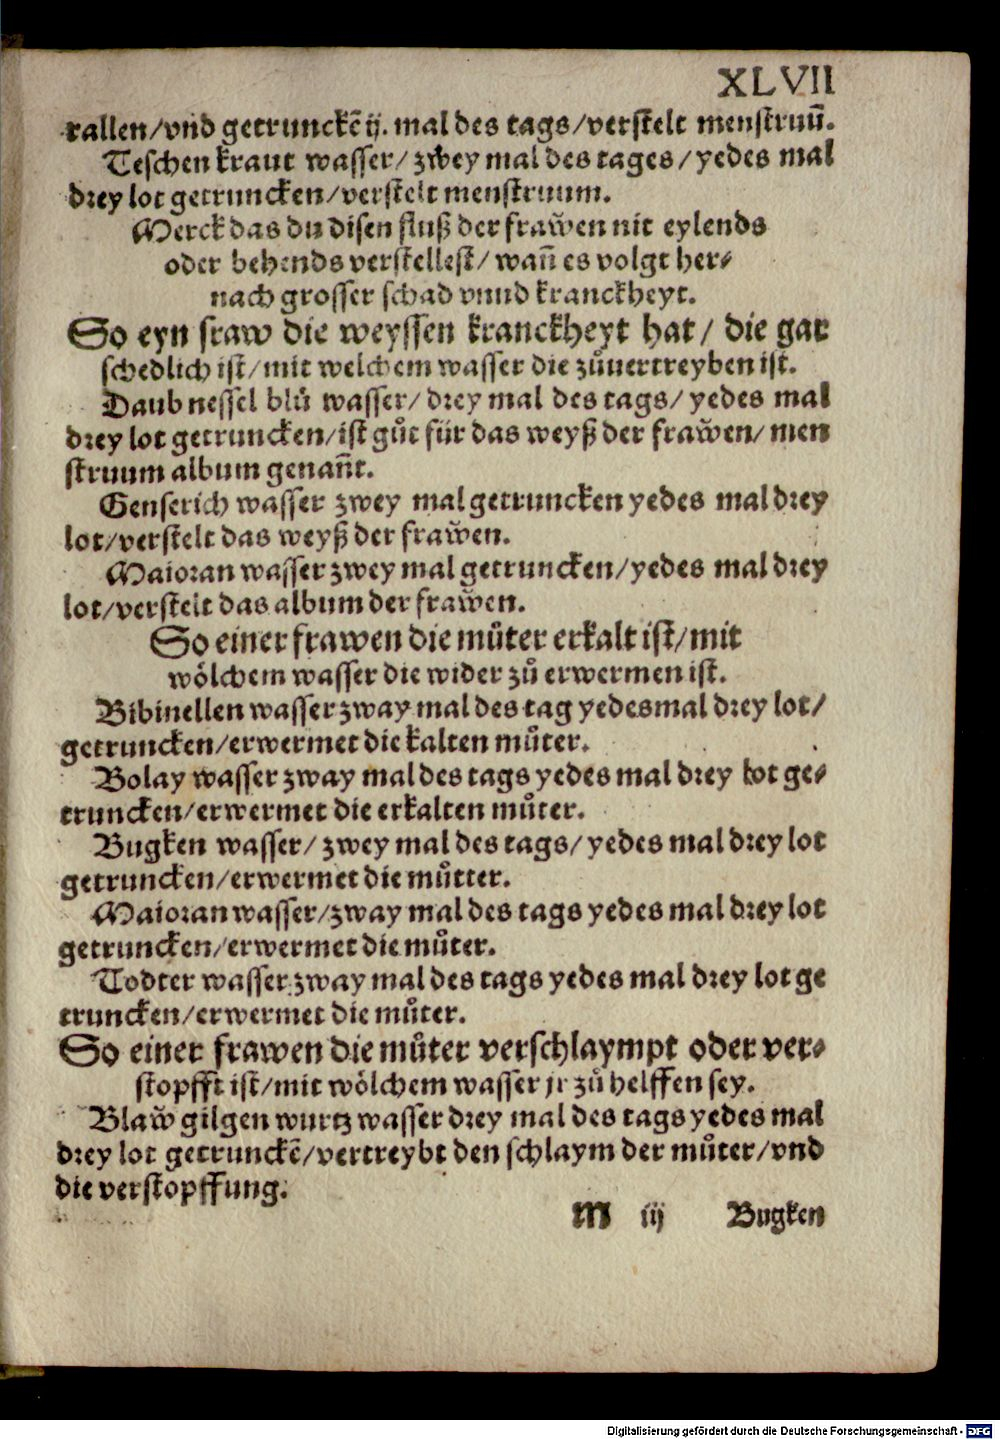 XLVII
rallen/vnd getrunckē ij. mal des tags/verstelt menstruū.
Teschen kraut wasser/ zwey mal des tages/yedes mal
drey lot getruncken/verstelt menstruum.
Merck das du disen fluß der frawen nit eylends
oder behends verstellest/ wañ es volgt her⸗
nach grosser schad vnnd kranckheyt.
So eyn fraw die weyssen kranckheyt hat/ die gar
schedlich ist/mit welchem wasser die zůuertreyben ist.
Daub nessel blů wasser/ drey mal des tags/ yedes mal
drey lot getruncken/ist gůt für das weyß der frawen/ men
struum album genañt.
Genserich wasser zwey mal getruncken yedes mal drey
lot/verstelt das weyß der frawen.
Maioran wasser zwey mal getruncken/yedes mal drey
lot/verstelt das album der frawen.
So einer frawen die můter erkalt ist/mit
wölchem wasser die wider zů erwermen ist.
Bibinellen wasser zway mal des tag yedesmal drey lot/
getruncken/erwermet die kalten můter.
Bolay wasser zway mal des tags yedes mal drey lot ge⸗
truncken/erwermet die erkalten můter.
Bugken wasser/ zwey mal des tags/ yedes mal drey lot
getruncken/erwermet die můtter.
Maioran wasser/zway mal des tags yedes mal drey lot
getruncken/erwermet die můter.
Todter wasser zway mal des tags yedes mal drey lot ge
truncken/erwermet die můter.
So einer frawen die můter verschlaympt oder ver⸗
stopfft ist/mit wölchem wasser jr zů helffen sey.
Blaw gilgen wurtz wasser drey mal des tags yedes mal
drey lot getrunckē/vertreybt den schlaym der můter/vnd
die verstopffung.
M iij Bugken
Digitalisierung gefördert durch die Deutsche Forschungsgemeinschaft - DFG